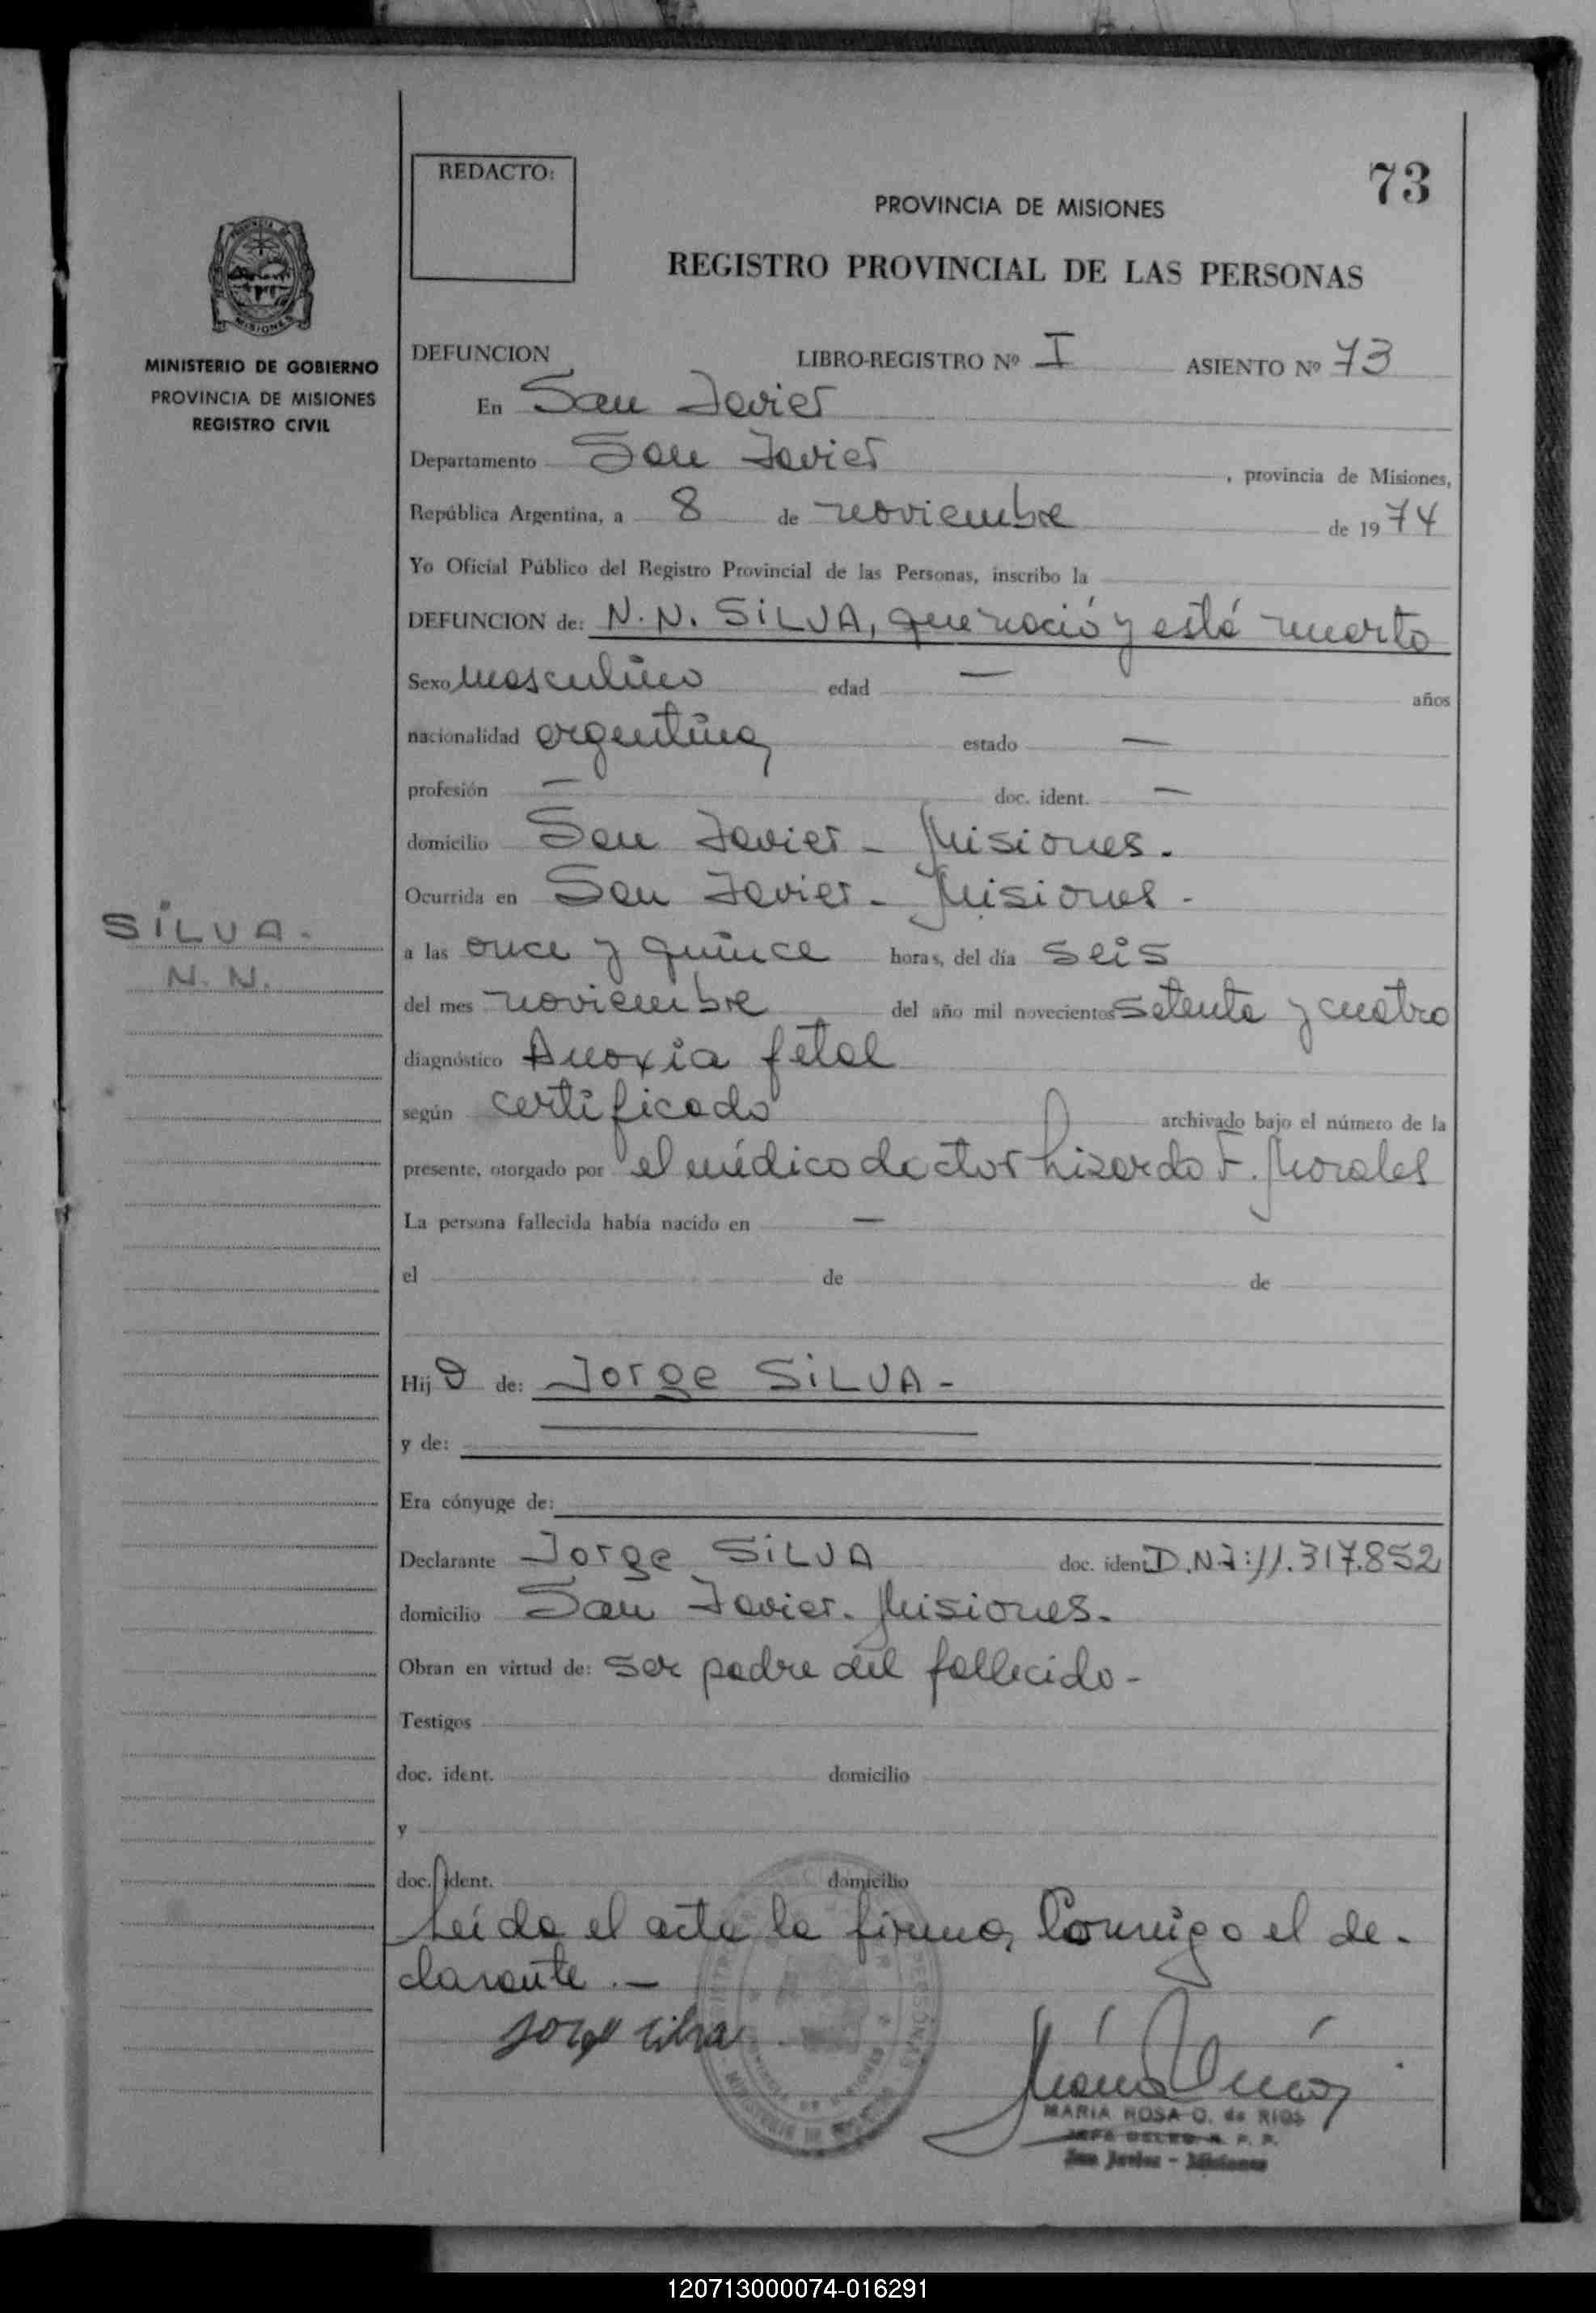 REDACTO:
73
PROVINCIA DE MISIONES
REGISTRO PROVINCIAL DE LAS PERSONAS
MISIONES
MINISTERIO DE GOBIERNO
PROVINCIA DE MISIONES
REGISTRO CIVIL
DEFUNCION LIBRO-REGISTRO Nº I ASIENTO Nº 73
En San Javier
Departamento San Javier, provincia de Misiones,
República Argentina, a 8 de noviembre de 1974
Yo Oficial Público del Registro Provincial de las Personas, inscribo la
DEFUNCION de: N.N. SILVA, que nació y está muerto
Sexo masculino edad — años
nacionalidad argentina estado —
profesión — doc. ident. —
domicilio San Javier - Misiones.
Ocurrida en San Javier - Misiones -
SILVA.
N. N.
a las once y quince horas, del día seis
del mes noviembre del año mil novecientos setenta y cuatro
diagnóstico Anoxia fetal
según certificado archivado bajo el número de la
presente, otorgado por el médico doctor Lisardo F. Morales
La persona fallecida había nacido en —
el de de
Hijo de: Jorge SILVA -
y de:
Era cónyuge de:
Declarante Jorge SILVA doc. ident. D.N.I: 11.317.852
domicilio San Javier. Misiones.
Obran en virtud de: ser padre del fallecido -
Testigos
doc. ident. domicilio
y
doc. ident. domicilio
Leída el acta la firma, Conmigo el de-
clarante. —
Jorge Silva
MARIA ROSA O. de RIOS
JEFE DELEG. R. P. P.
San Javier - Misiones
120713000074-016291